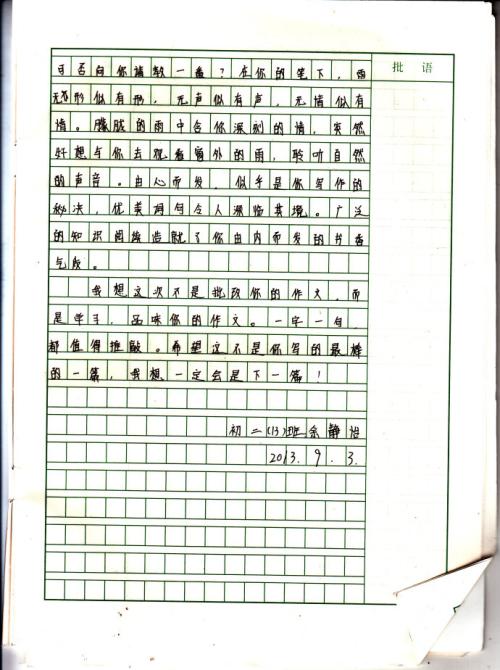 批语
可否向你请教一番？在你的笔下，雨
形似有形，无声似有声，无情似有
情。朦胧的雨中含你深刻的情，突然
好想与你去观看窗外的雨，聆听自然
的声音。由心而发，似乎是你写作的
秘决，优美词句令人深临其境。广泛
的知识阅练造就了你由内而发的书香
气质。
我想这次不是批改你的作文，而
是学习，品味你的作文。一字一句，
都值得推敲。希望这不是你写的最棒
的一篇，我想一定会是下一篇！
初二(13)班余静怡
2013.9.3.